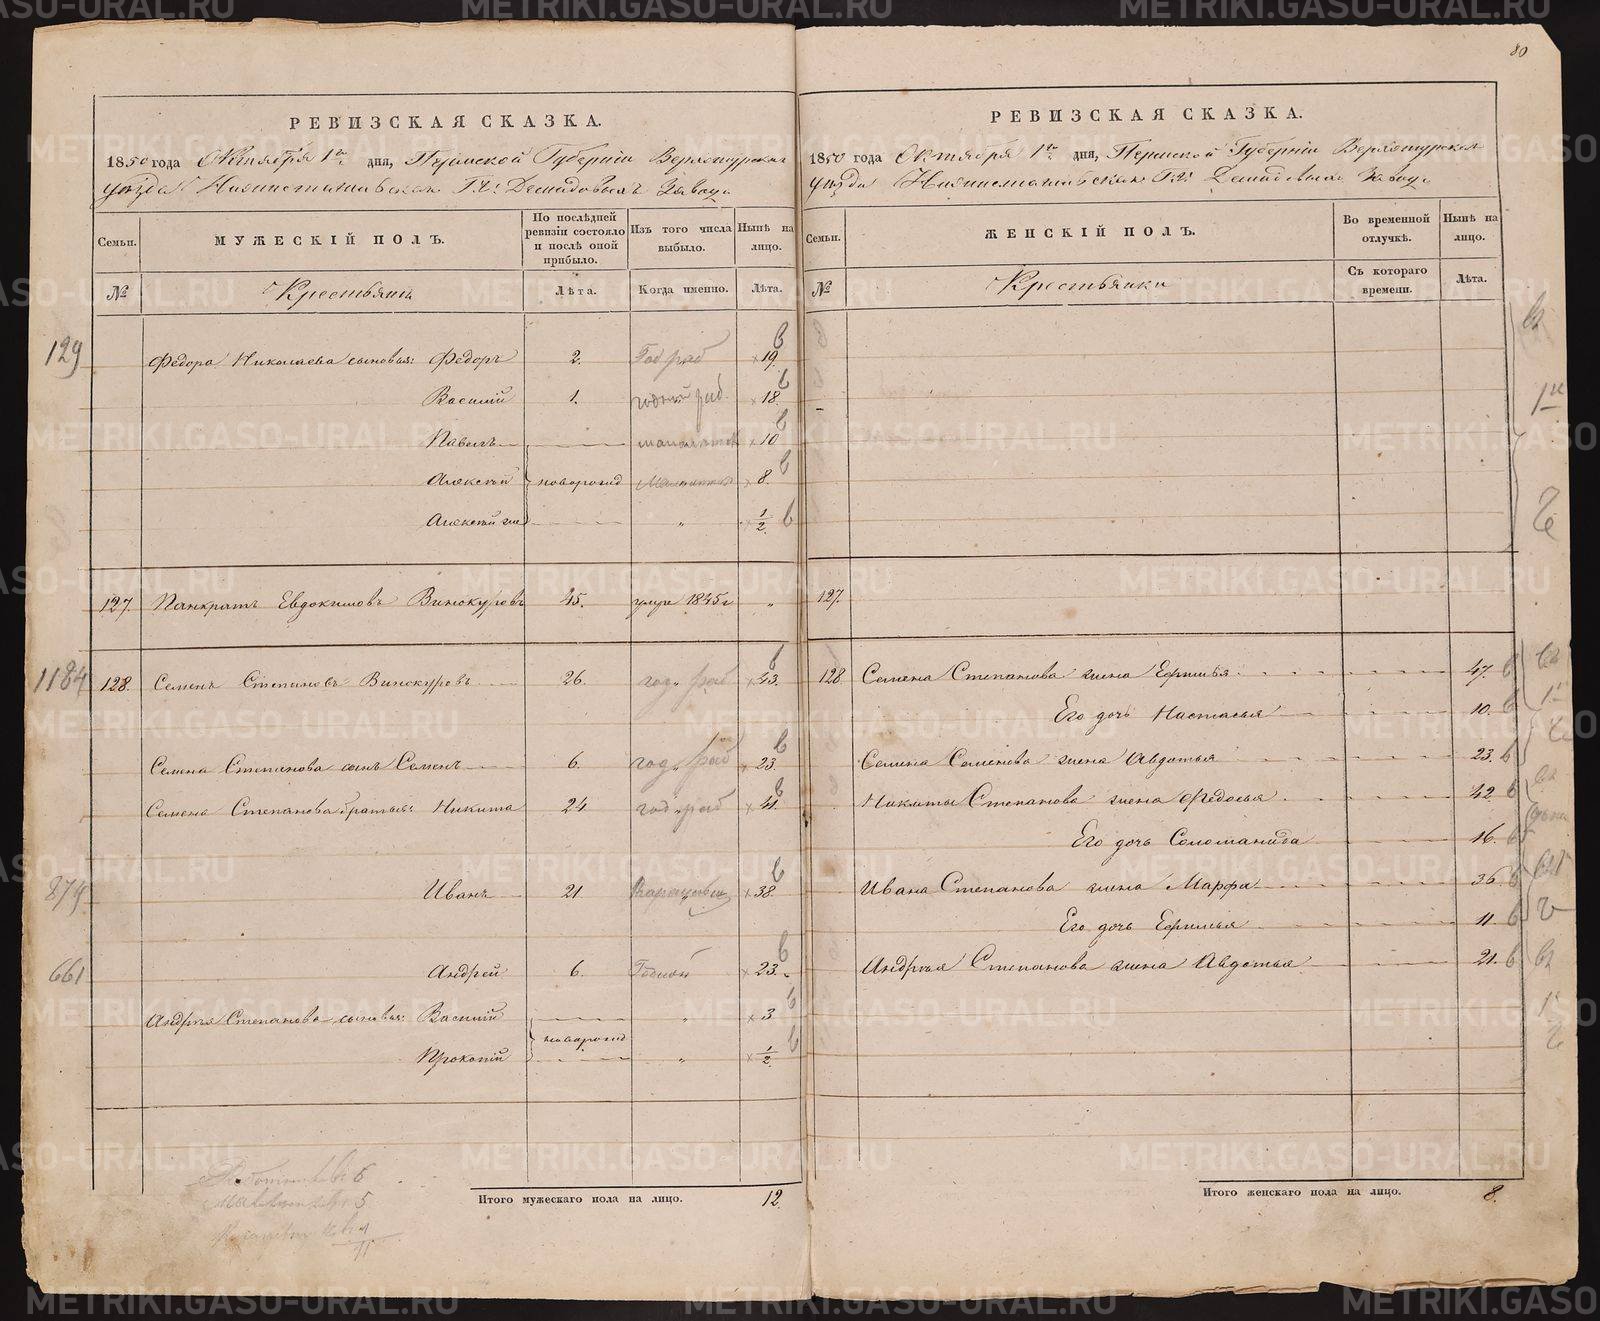 80
РЕВИЗСКАЯ СКАЗКА.
1850 года Октября 1го дня, Пермской Губерніи Верхотурскаго
уѣзда Нижнетагильскаго Г.г. Демидовыхъ Завода
Семьи.
МУЖЕСКІЙ ПОЛЪ.
По послѣдней ревизіи состояло и послѣ оной прибыло.
Изъ того числа выбыло.
Нынѣ на лицо.
№
Крестьяне
Лѣта.
Когда именно.
Лѣта.
129
Федора Николаева сыновья: Федоръ 2. Год раб 19.
Василій 1. годный раб. 18.
Павелъ 10
Алексѣй новорожд 8.
Алексѣй же " 1/2.
127. Панкратъ Евдокимовъ Винокуровъ 45. умре 1845г "
1184 128. Семенъ Степановъ Винокуровъ 26. год. раб 43.
Семена Степанова сынъ Семенъ 6. год. раб 23
Семена Степанова братья: Никита 24 год. раб 41
879 Иванъ 21 38.
661 Андрей 6. Годной 23.
Андрея Степанова сыновья: Василій " 3
новорожд
Прокопій " 1/2
6
5
Итого мужескаго пола на лицо. 12.
РЕВИЗСКАЯ СКАЗКА.
1850 года Октября 1го дня, Пермской Губерніи Верхотурскаго
уѣзда Нижнетагильскаго Г.г. Демидовыхъ Завода
Семьи.
ЖЕНСКІЙ ПОЛЪ.
Во временной отлучкѣ.
Нынѣ на лицо.
№
Крестьянки
Съ котораго времени.
Лѣта.
127.
128 Семена Степанова жена Ефимья 47.
Его дочь Настасья 10.
Семена Семенова жена Авдотья 23.
Никиты Степанова жена Федосья 42.
Его дочь Соломанида 16.
Ивана Степанова жена Марфа 36
Его дочь Ефимья 11.
Андрея Степанова жена Авдотья 21.
Итого женскаго пола на лицо. 8.
METRIKI.GASO-URAL.RU